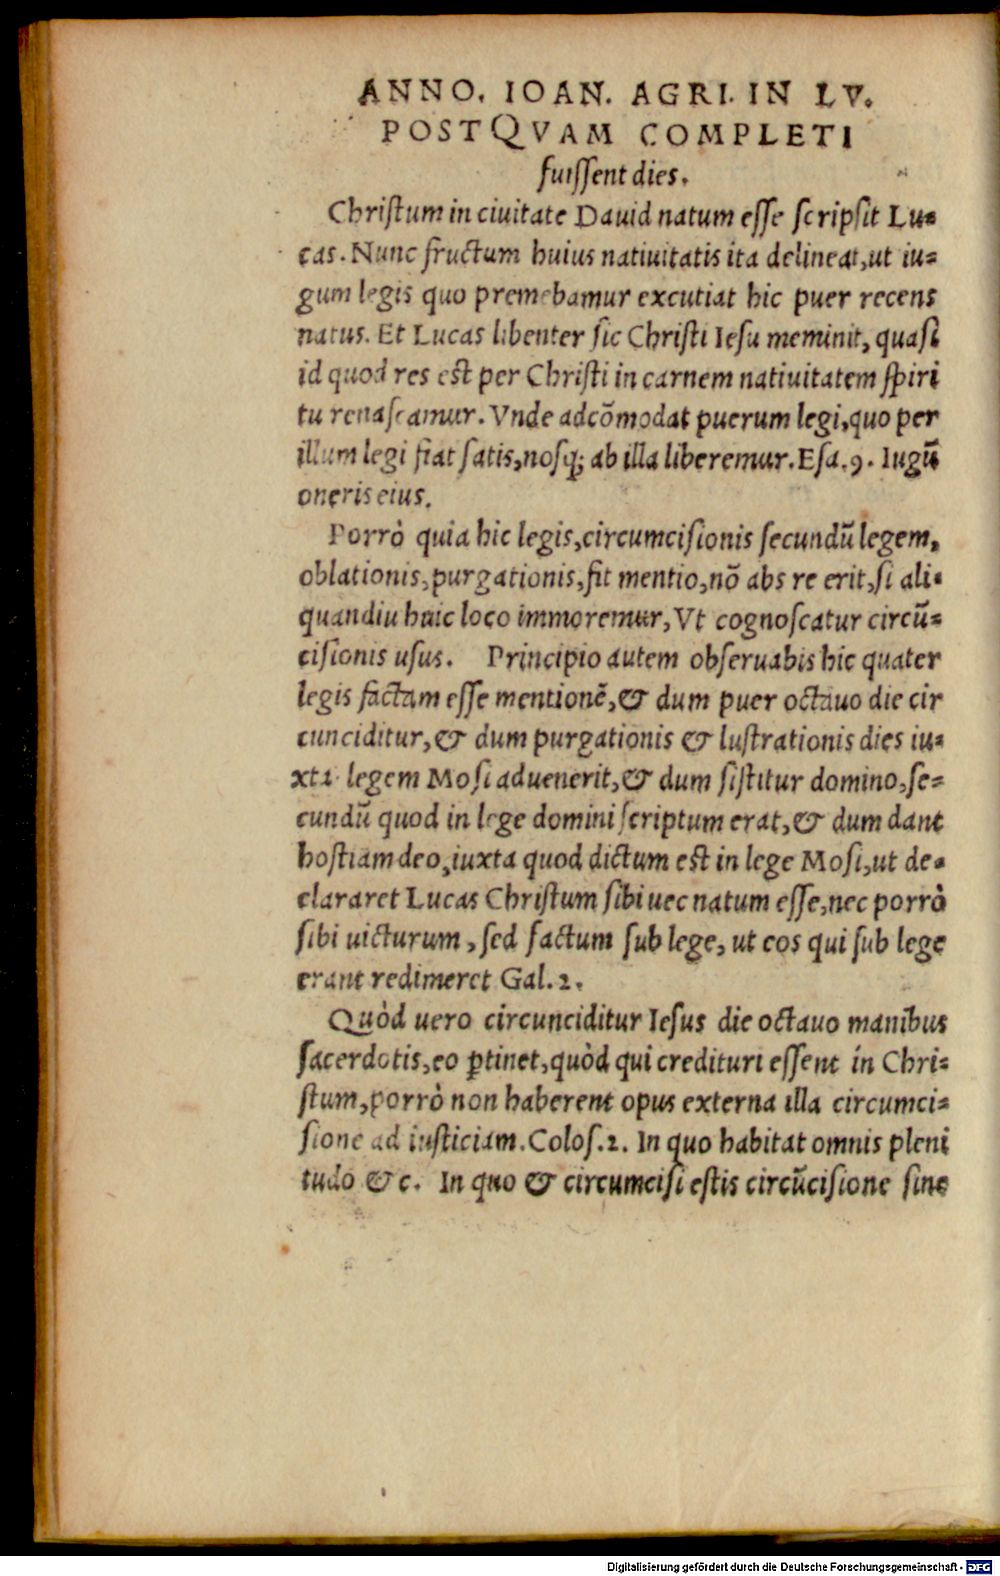 ANNO. IOAN. AGRI. IN LV.
POSTQVAM COMPLETI
fuiſſent dies.
Chriſtum in ciuitate Dauid natum eſſe ſcripſit Lu=
cas. Nunc fructum huius natiuitatis ita delineat, ut iu=
gum legis quo premebamur excutiat hic puer recens
natus. Et Lucas libenter ſic Chriſti Ieſu meminit, quaſi
id quod res eſt per Chriſti in carnem natiuitatem ſpiri
tu renaſcamur. Vnde adcõmodat puerum legi, quo per
illum legi fiat ſatis, noſq; ab illa liberemur. Eſa. 9. Iugũ
oneris eius.
Porrò quia hic legis, circumciſionis ſecundũ legem,
oblationis, purgationis, fit mentio, nõ abs re erit, ſi ali=
quandiu huic loco immoremur, Vt cognoſcatur circũ=
ciſionis uſus. Principio autem obſeruabis hic quater
legis factam eſſe mentionẽ, & dum puer octauo die cir
cunciditur, & dum purgationis & luſtrationis dies iu=
xta legem Moſi aduenerit, & dum ſiſtitur domino, ſe=
cundũ quod in lege domini ſcriptum erat, & dum dant
hoſtiam deo, iuxta quod dictum eſt in lege Moſi, ut de=
clararet Lucas Chriſtum ſibi uec natum eſſe, nec porrò
ſibi uicturum, ſed factum ſub lege, ut eos qui ſub lege
erant redimeret Gal. 2.
Quòd uero circunciditur Ieſus die octauo manibus
ſacerdotis, eo ꝑtinet, quòd qui credituri eſſent in Chri=
ſtum, porrò non haberent opus externa illa circumci=
ſione ad iuſticiam. Coloſ. 2. In quo habitat omnis pleni
tudo & c. In quo & circumciſi eſtis circũciſione ſine
Digitalisierung gefördert durch die Deutsche Forschungsgemeinschaft - DFG